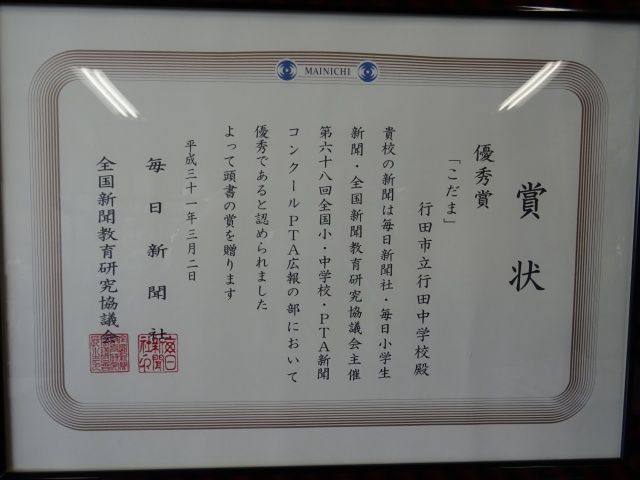 MAINICHI
賞状
優秀賞
「こだま」
行田市立行田中学校殿
貴校の新聞は毎日新聞社・毎日小学生
新聞・全国新聞教育研究協議会主催
第六十八回全国小・中学校・PTA新聞
コンクールPTA広報の部において
優秀であると認められました
よって頭書の賞を贈ります
平成三十一年三月二日
毎日新聞社
全国新聞教育研究協議会